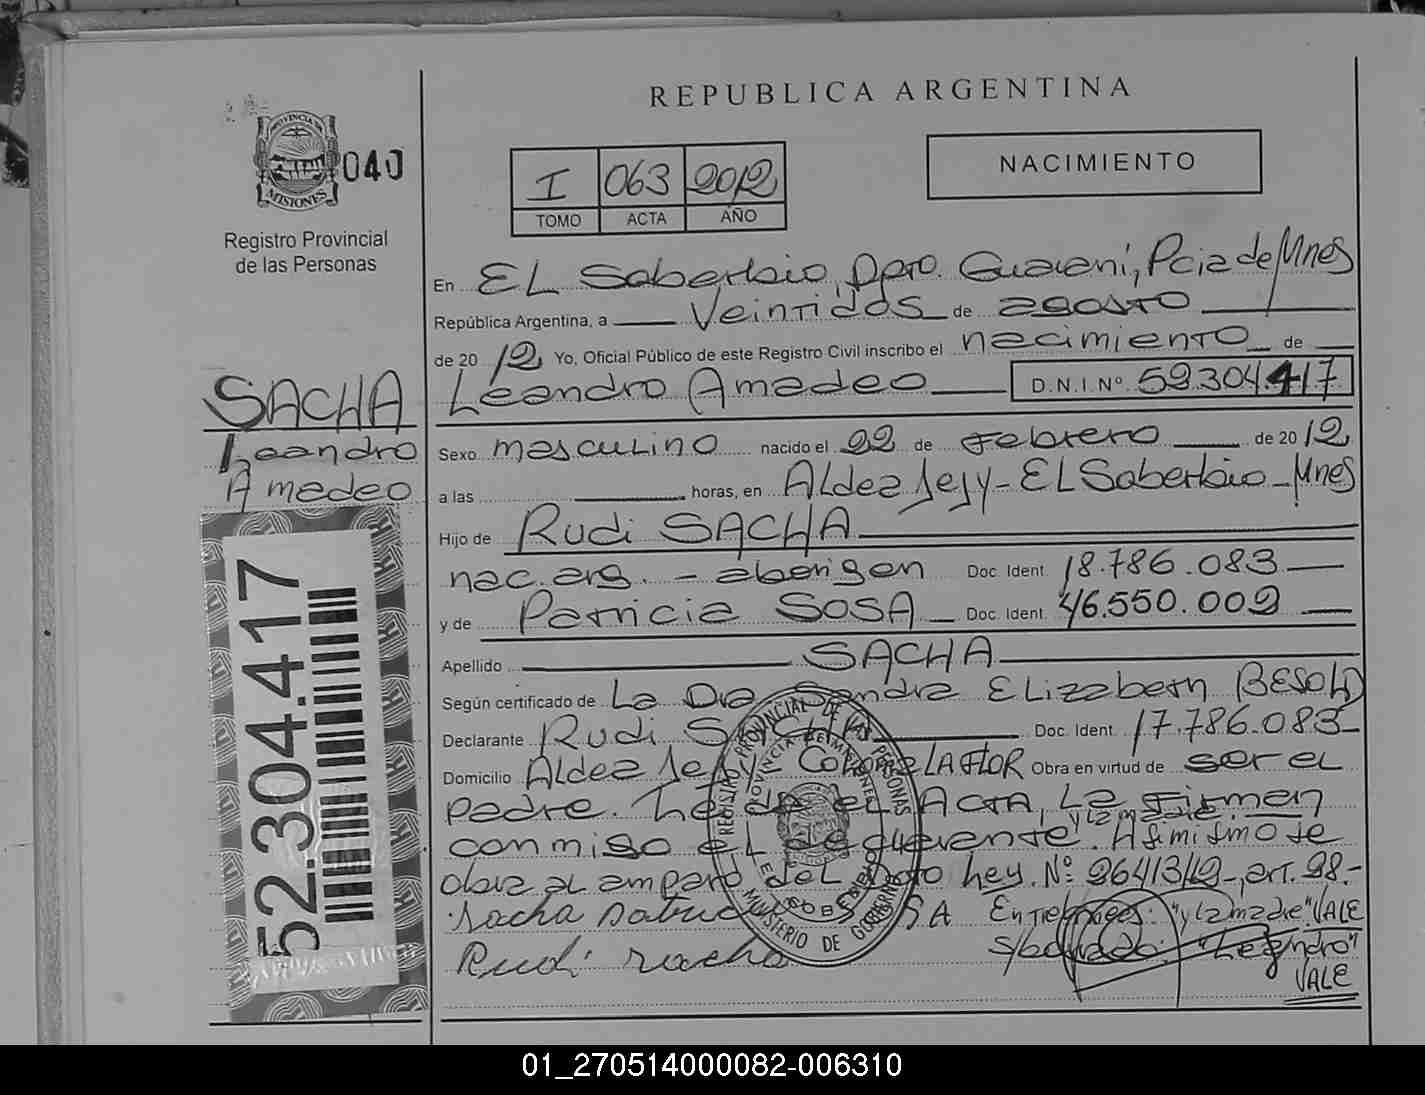 REPUBLICA ARGENTINA
PROVINCIA DE
MISIONES
040
Registro Provincial
de las Personas
I 063 2012
TOMO ACTA AÑO
NACIMIENTO
En EL Soberbio, Dpto. Guaraní, Pcia de Mnes
República Argentina, a Veintidos de agosto
de 2012 Yo, Oficial Público de este Registro Civil inscribo el nacimiento de
Leandro Amadeo D.N.I. Nº 52.304.417
SACHA
Leandro
Amadeo
52.304.417
Sexo masculino nacido el 22 de Febrero de 2012
a las horas, en Aldea Jejy - EL Soberbio - Mnes
Hijo de Rudi SACHA
nac. arg. - aborigen Doc. Ident. 18.786.083
y de Patricia SOSA Doc. Ident. 46.550.002
Apellido SACHA
Según certificado de La Dra Sandra Elizabeth BESOLD
Declarante Rudi SACHA Doc. Ident. 17.786.083
Domicilio Aldea Jejy - Colonia LA FLOR Obra en virtud de ser el
padre. Leída el ACTA, La Firman
y la madre
conmigo el de Asimismo se
obra al amparo del Dcto Ley. Nº 26413/12, art. 98.-
Sacha Patricia SOSA Entrelíneas: "y la madre" VALE
Rudi sacha S/borrado: "Leandro"
VALE
REGISTRO PROVINCIAL DE LAS PERSONAS
PROVINCIA DE MISIONES
EL SOBERBIO
MINISTERIO DE GOBIERNO
01_270514000082-006310